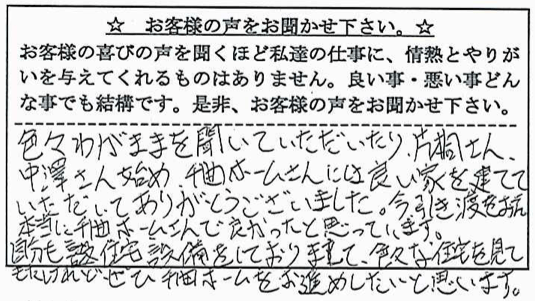 ☆ お客様の声をお聞かせ下さい。☆
お客様の喜びの声を聞くほど私達の仕事に、情熱とやりが
いを与えてくれるものはありません。良い事・悪い事どん
な事でも結構です。是非、お客様の声をお聞かせ下さい。
色々わがままを聞いていただいたり、片桐さん、
中澤さん始め、千曲ホームさんには良い家を建てて
いただいてありがとうございました。今引き渡し
本当に千曲ホームさんで良かったと思っています。
自分も 住宅設備をしておりまして、色々な住宅を見て
けれどぜひ千曲ホームをお進めしたいと思います。